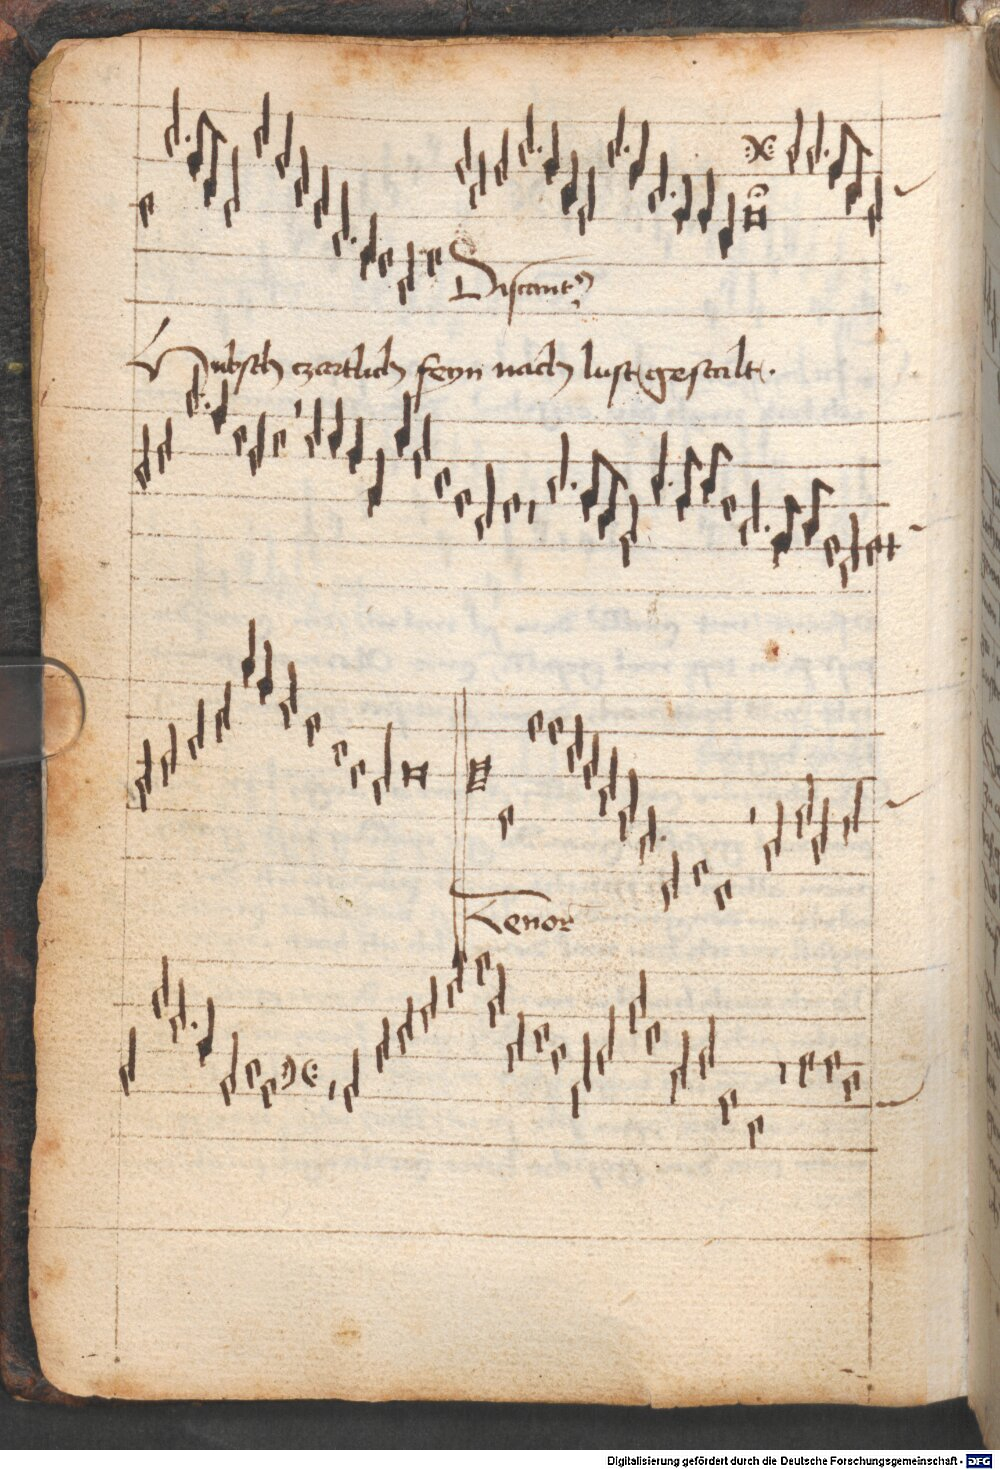 Discantus
Hubsch czartlich feyn nach lust gestalt.
Tenor
Digitalisierung gefördert durch die Deutsche Forschungsgemeinschaft - DFG